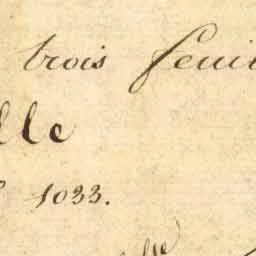 trois feui
lle
1033.
lle